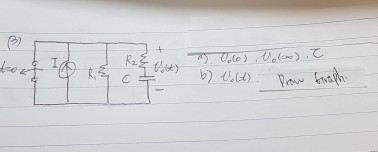 (3)
t=0
I
R₁
R₂
C
+
V₀(t)
-
a) V₀(0), V₀(∞), τ
b) V₀(t)
Draw Graph.